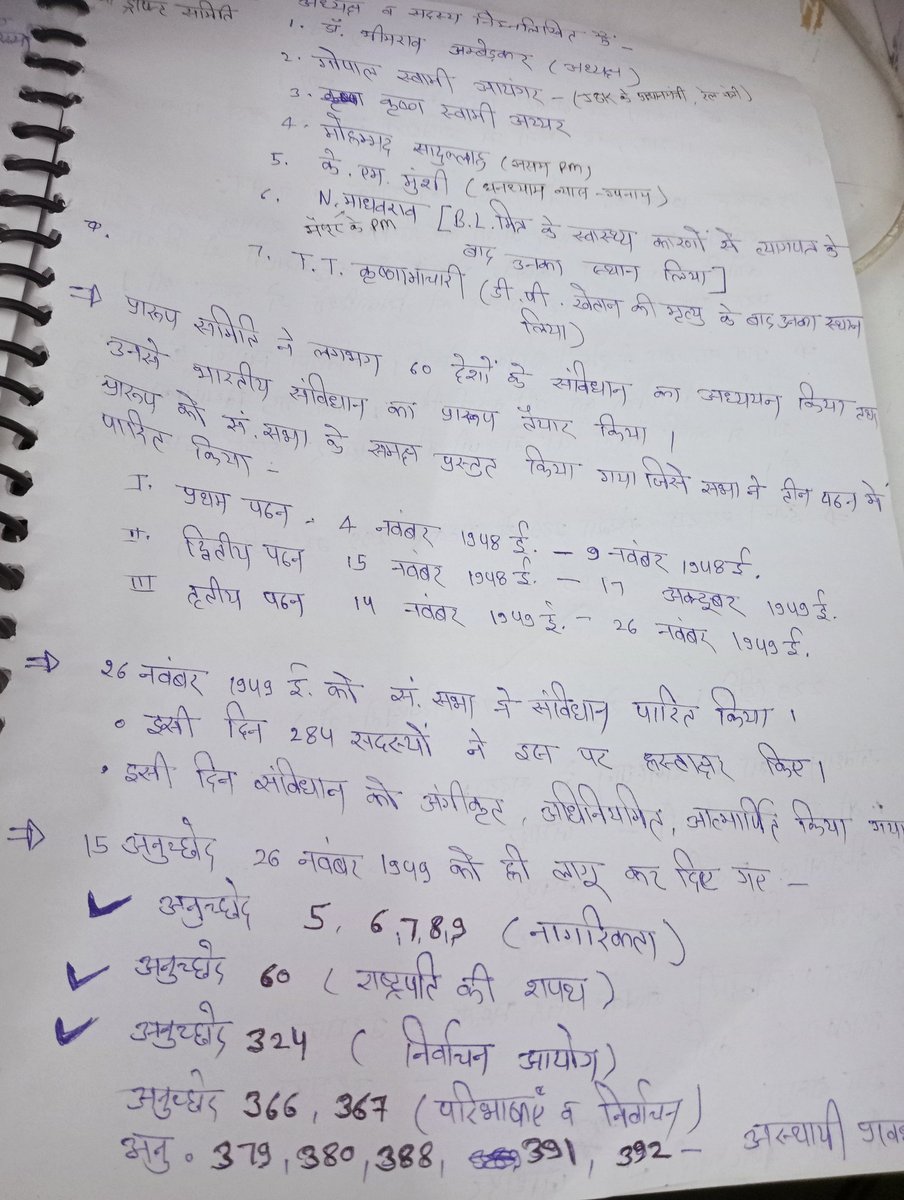 ड्राफ्ट समिति
अध्यक्ष व सदस्य निम्नलिखित हैं -
1. डॉ. भीमराव अम्बेडकर (अध्यक्ष)
2. गोपाल स्वामी आयंगर - (J&K के प्रधानमंत्री, रेल मंत्री)
3. कृष्ण स्वामी अय्यर
4. मोहम्मद सादुल्लाह (असम PM)
5. के. एम. मुंशी (घनश्याम व्यास - उपनाम)
6. N. माधवराव [B.L. मित्र के स्वास्थ्य कारणों से त्यागपत्र के
के PM बाद उनका स्थान लिया]
7. T.T. कृष्णामाचारी (डी. पी. खेतान की मृत्यु के बाद उनका स्थान
लिया)
⇒ प्रारूप समिति ने लगभग 60 देशों के संविधान का अध्ययन किया तथा
उनसे भारतीय संविधान का प्रारूप तैयार किया।
प्रारूप को सं. सभा के समक्ष प्रस्तुत किया गया जिसे सभा ने तीन पठन में
पारित किया -
I. प्रथम पठन - 4 नवंबर 1948 ई. - 9 नवंबर 1948 ई.
II. द्वितीय पठन 15 नवंबर 1948 ई. - 17 अक्टूबर 1949 ई.
III तृतीय पठन 14 नवंबर 1949 ई. - 26 नवंबर 1949 ई.
⇒ 26 नवंबर 1949 ई. को सं. सभा ने संविधान पारित किया।
• इसी दिन 284 सदस्यों ने इस पर हस्ताक्षर किए।
• इसी दिन संविधान को अंगीकृत, अधिनियमित, आत्मार्पित किया गया
⇒ 15 अनुच्छेद 26 नवंबर 1949 को ही लागू कर दिए गए -
✓ अनुच्छेद 5, 6, 7, 8, 9 (नागरिकता)
✓ अनुच्छेद 60 (राष्ट्रपति की शपथ)
✓ अनुच्छेद 324 (निर्वाचन आयोग)
अनुच्छेद 366, 367 (परिभाषाएँ व निर्वाचन)
अनु. 379, 380, 388, 391, 392 - अस्थायी